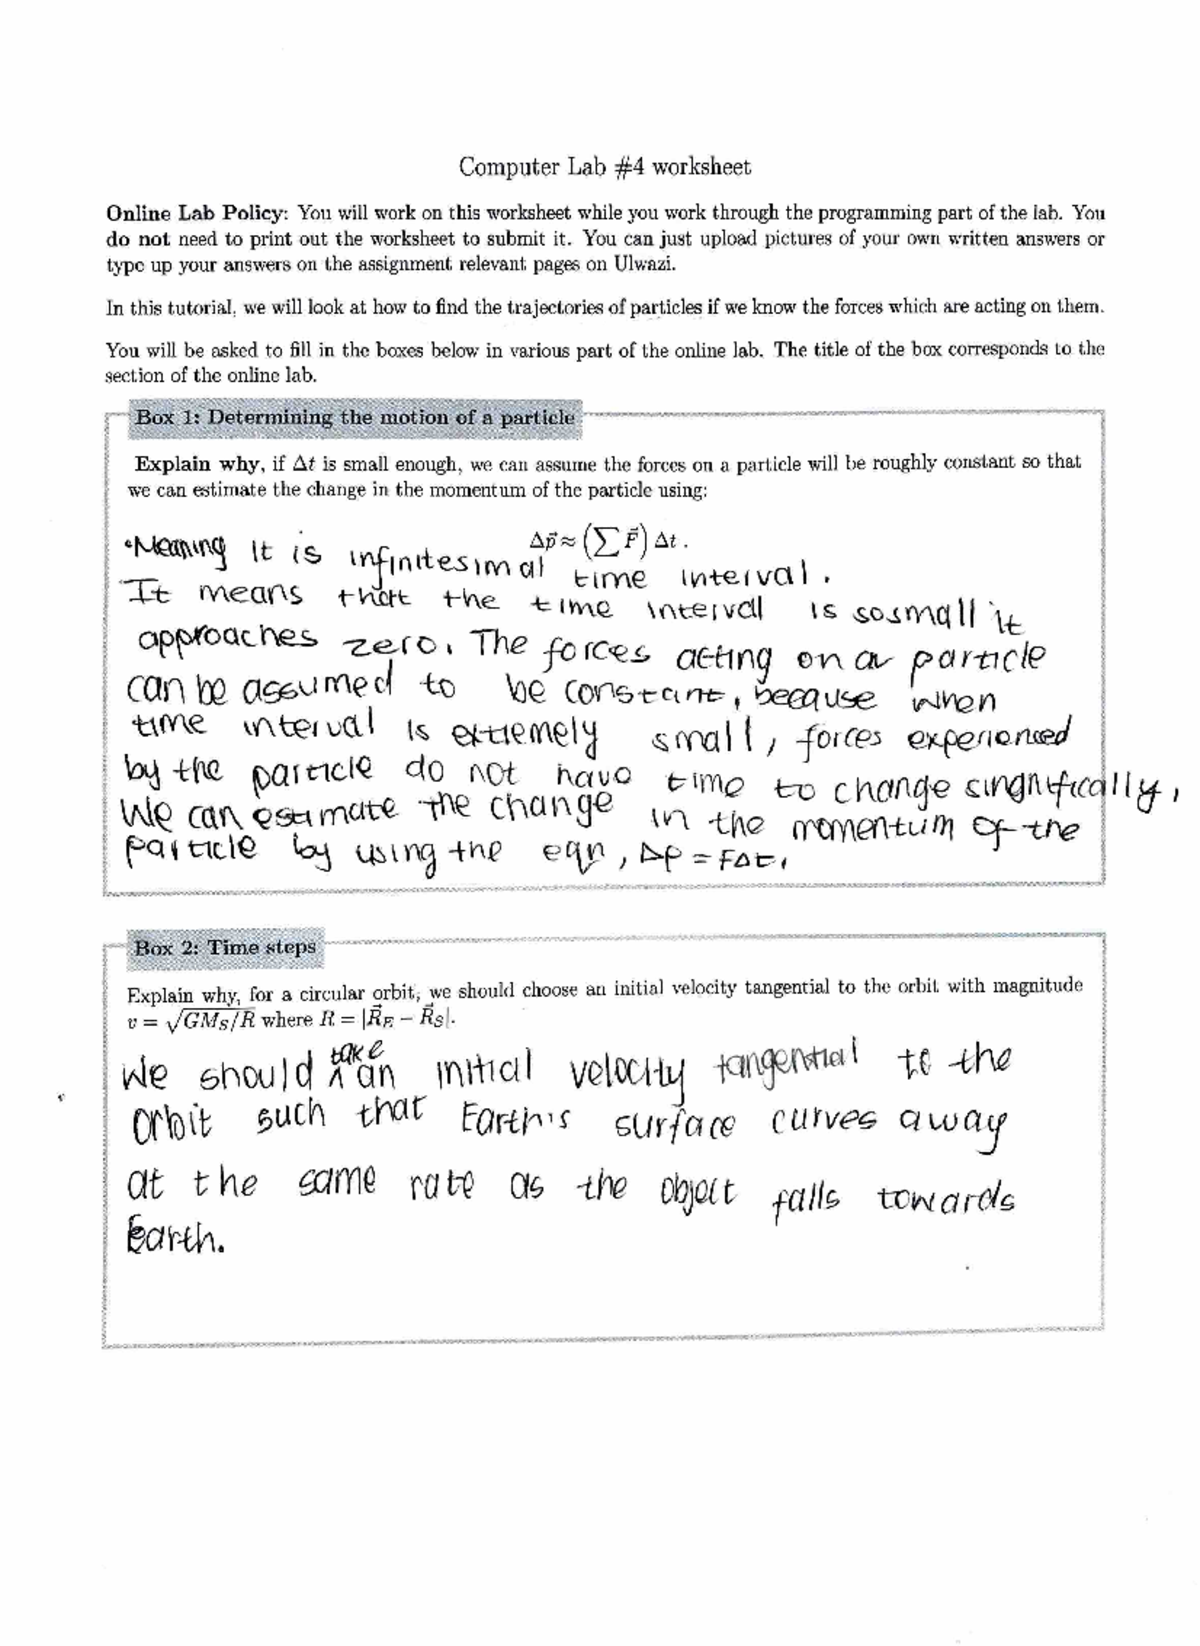 Computer Lab #4 worksheet
Online Lab Policy: You will work on this worksheet while you work through the programming part of the lab. You
do not need to print out the worksheet to submit it. You can just upload pictures of your own written answers or
type up your answers on the assignment relevant pages on Ulwazi.
In this tutorial, we will look at how to find the trajectories of particles if we know the forces which are acting on them.
You will be asked to fill in the boxes below in various part of the online lab. The title of the box corresponds to the
section of the online lab.
Box 1: Determining the motion of a particle
Explain why, if Δt is small enough, we can assume the forces on a particle will be roughly constant so that
we can estimate the change in the momentum of the particle using:
Δp⃗ ≈ (∑ F⃗) Δt.
•Meaning it is infinitesimal time interval.
It means that the time interval is so small it
approaches zero. The forces acting on a particle
can be assumed to be constant, because when
time interval is extremely small, forces experienced
by the particle do not have time to change singnifically,
We can estimate the change in the momentum of the
particle by using the eqn, Δp = FΔt,
Box 2: Time steps
Explain why, for a circular orbit, we should choose an initial velocity tangential to the orbit with magnitude
v = √GM_S/R where R = |R⃗_E − R⃗_S|.
We should take an initial velocity tangential to the
orbit such that Earth's surface curves away
at the same rate as the object falls towards
Earth.